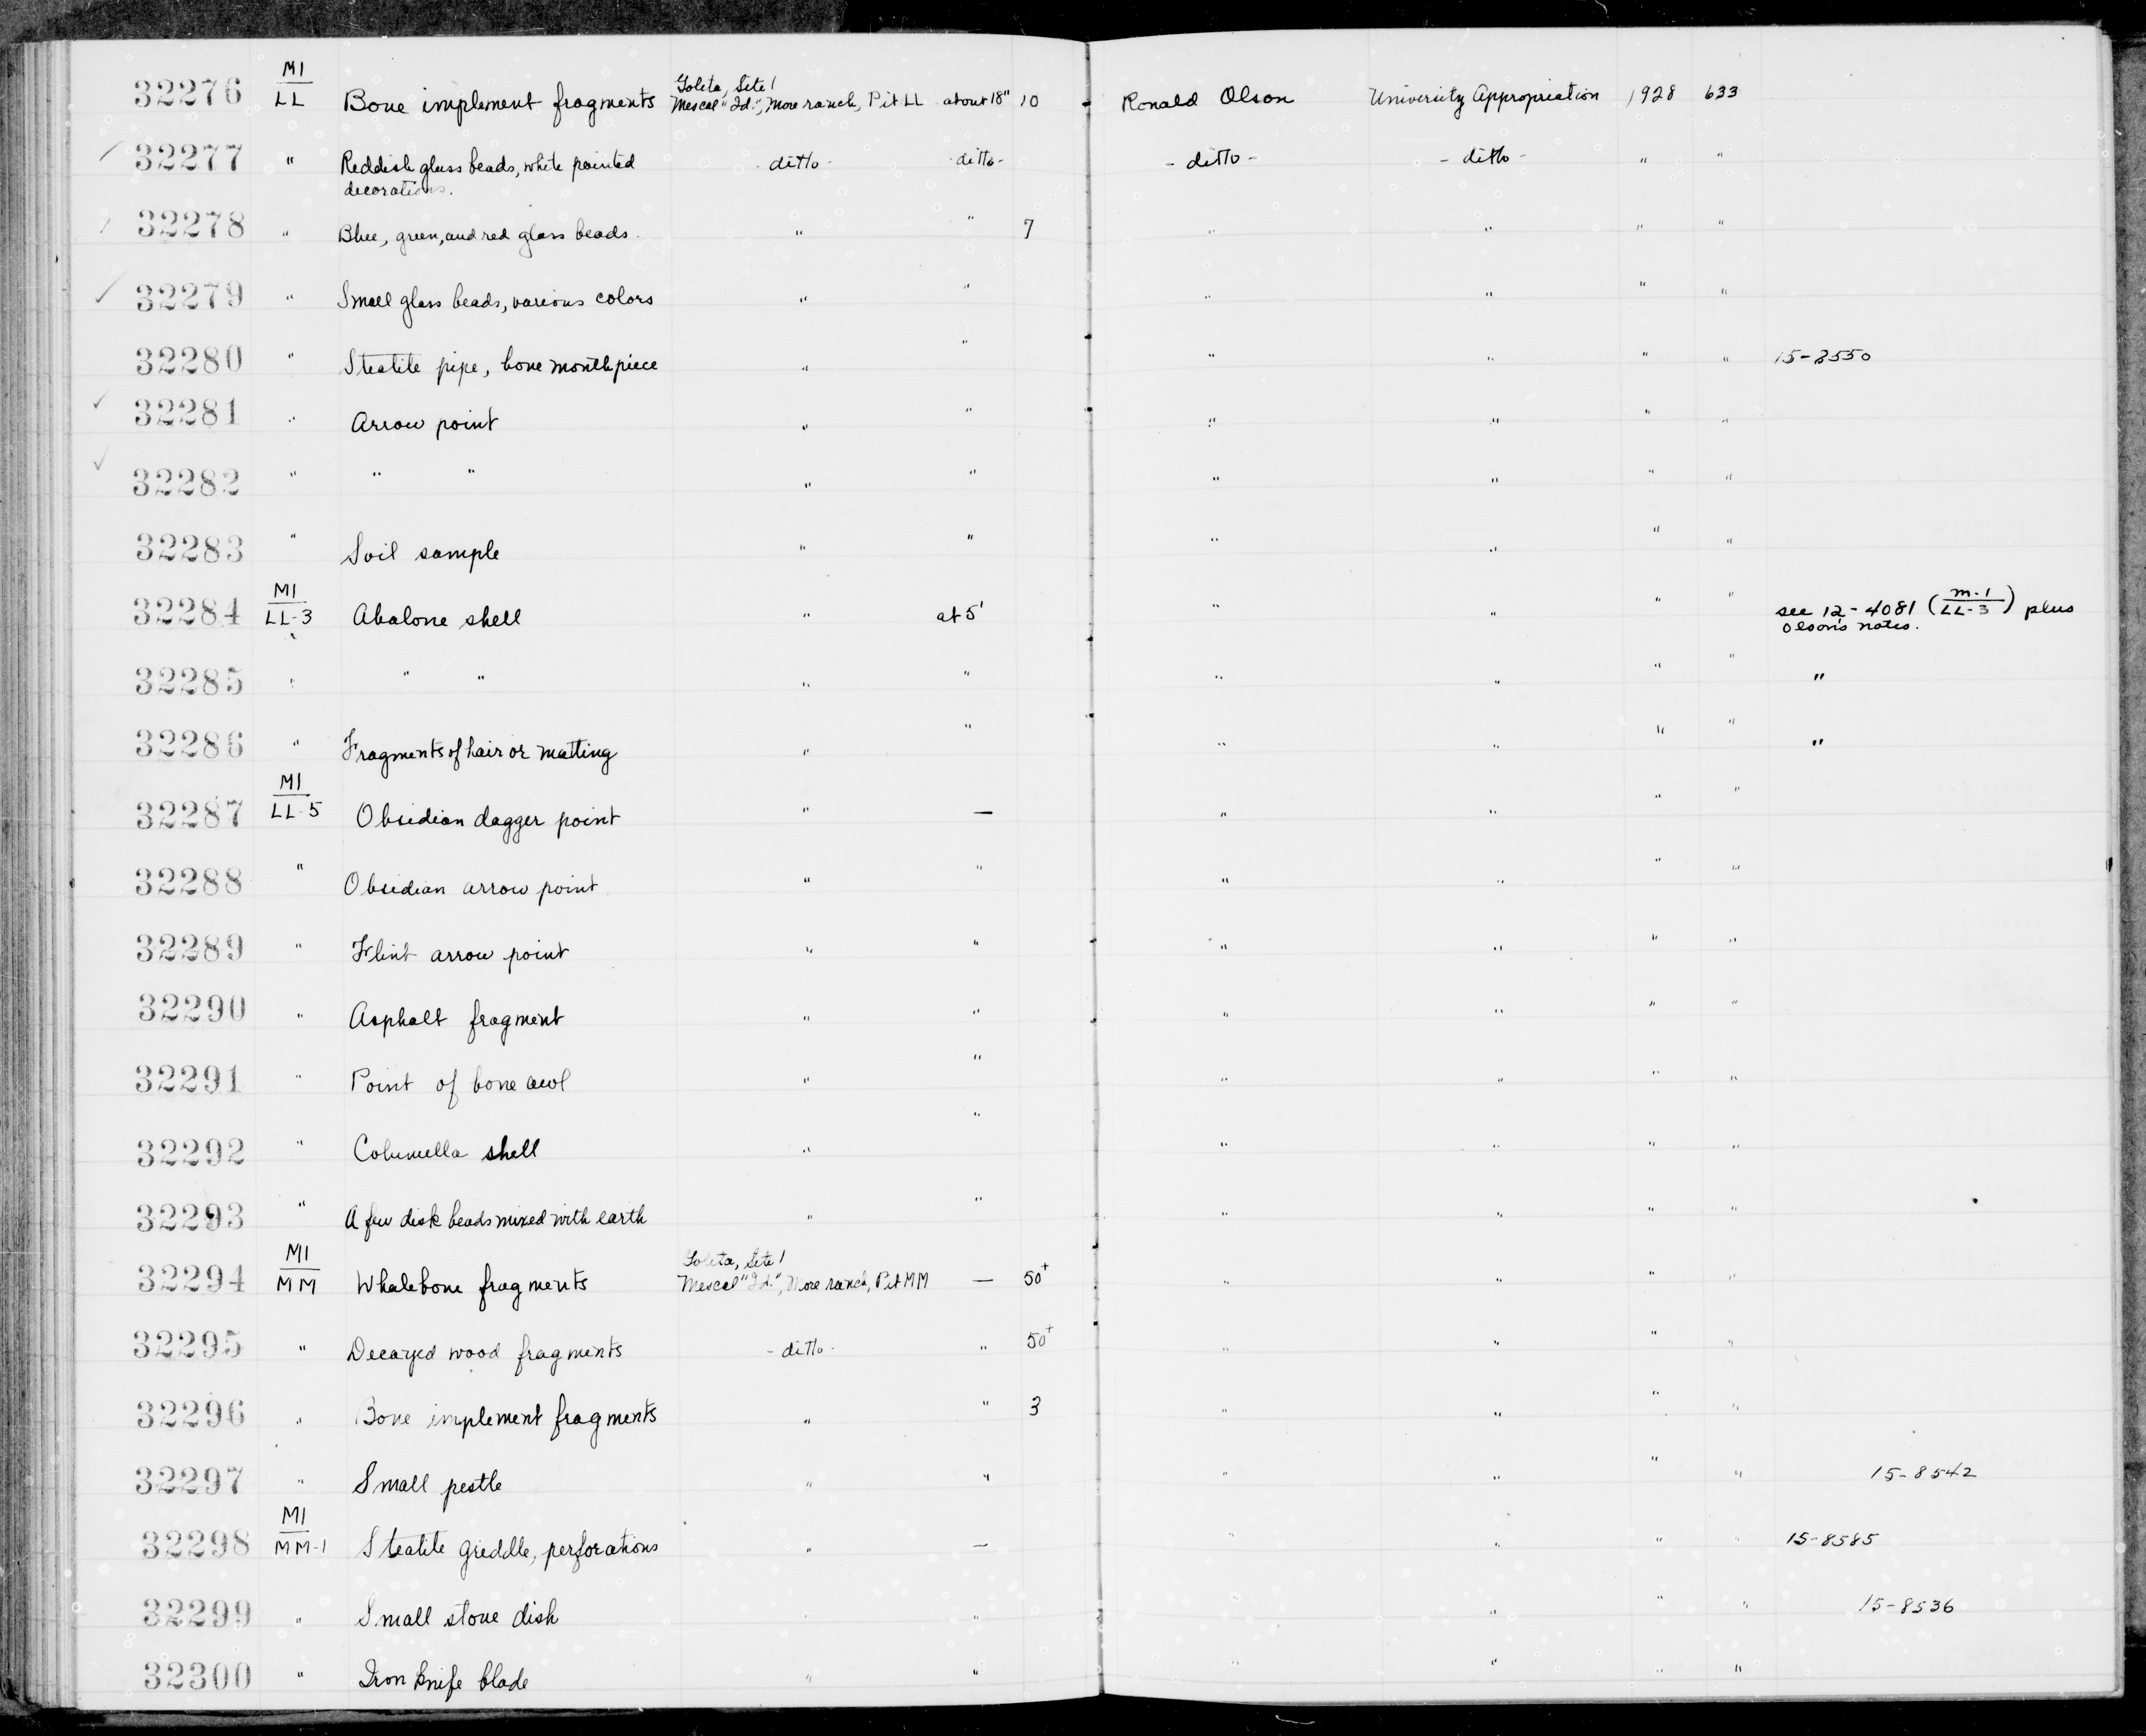 32276 M1/LL Bone implement fragments Goleta, Site 1 Mescal "Id.", More ranch, Pit LL about 18" 10 Ronald Olson University Appropriation 1928 633
32277 " Reddish glass beads, white painted decorations. - ditto - - ditto - - ditto - - ditto - " "
32278 " Blue, green, and red glass beads. " " 7 " " " "
32279 " Small glass beads, various colors " " " " " "
32280 " Steatite pipe, bone mouthpiece " " " " " " 15-8550
32281 " Arrow point " " " " " "
32282 " " " " " " " " "
32283 " Soil sample " " " " " "
32284 M1/LL-3 Abalone shell " at 5' " " " " see 12-4081 (M-1/LL-3) plus Olson's notes.
32285 " " " " " " " " " "
32286 " Fragments of hair or matting " " " " " " "
32287 M1/LL-5 Obsidian dagger point " — " " " "
32288 " Obsidian arrow point " " " " " "
32289 " Flint arrow point " " " " " "
32290 " Asphalt fragment " " " " " "
32291 " Point of bone awl " " " " " "
32292 " Columella shell " " " " " "
32293 " A few disk beads mixed with earth " " " " " "
32294 M1/MM Whalebone fragments Goleta, Site 1 Mescal "Id.", More ranch, Pit MM — 50+ " " " "
32295 " Decayed wood fragments - ditto - " 50+ " " " "
32296 " Bone implement fragments " " 3 " " " "
32297 " Small pestle " " " " " " 15-8542
32298 M1/MM-1 Steatite griddle, perforations " — " " " " 15-8585
32299 " Small stone dish " " " " " " 15-8536
32300 " Iron knife blade " " " " " "